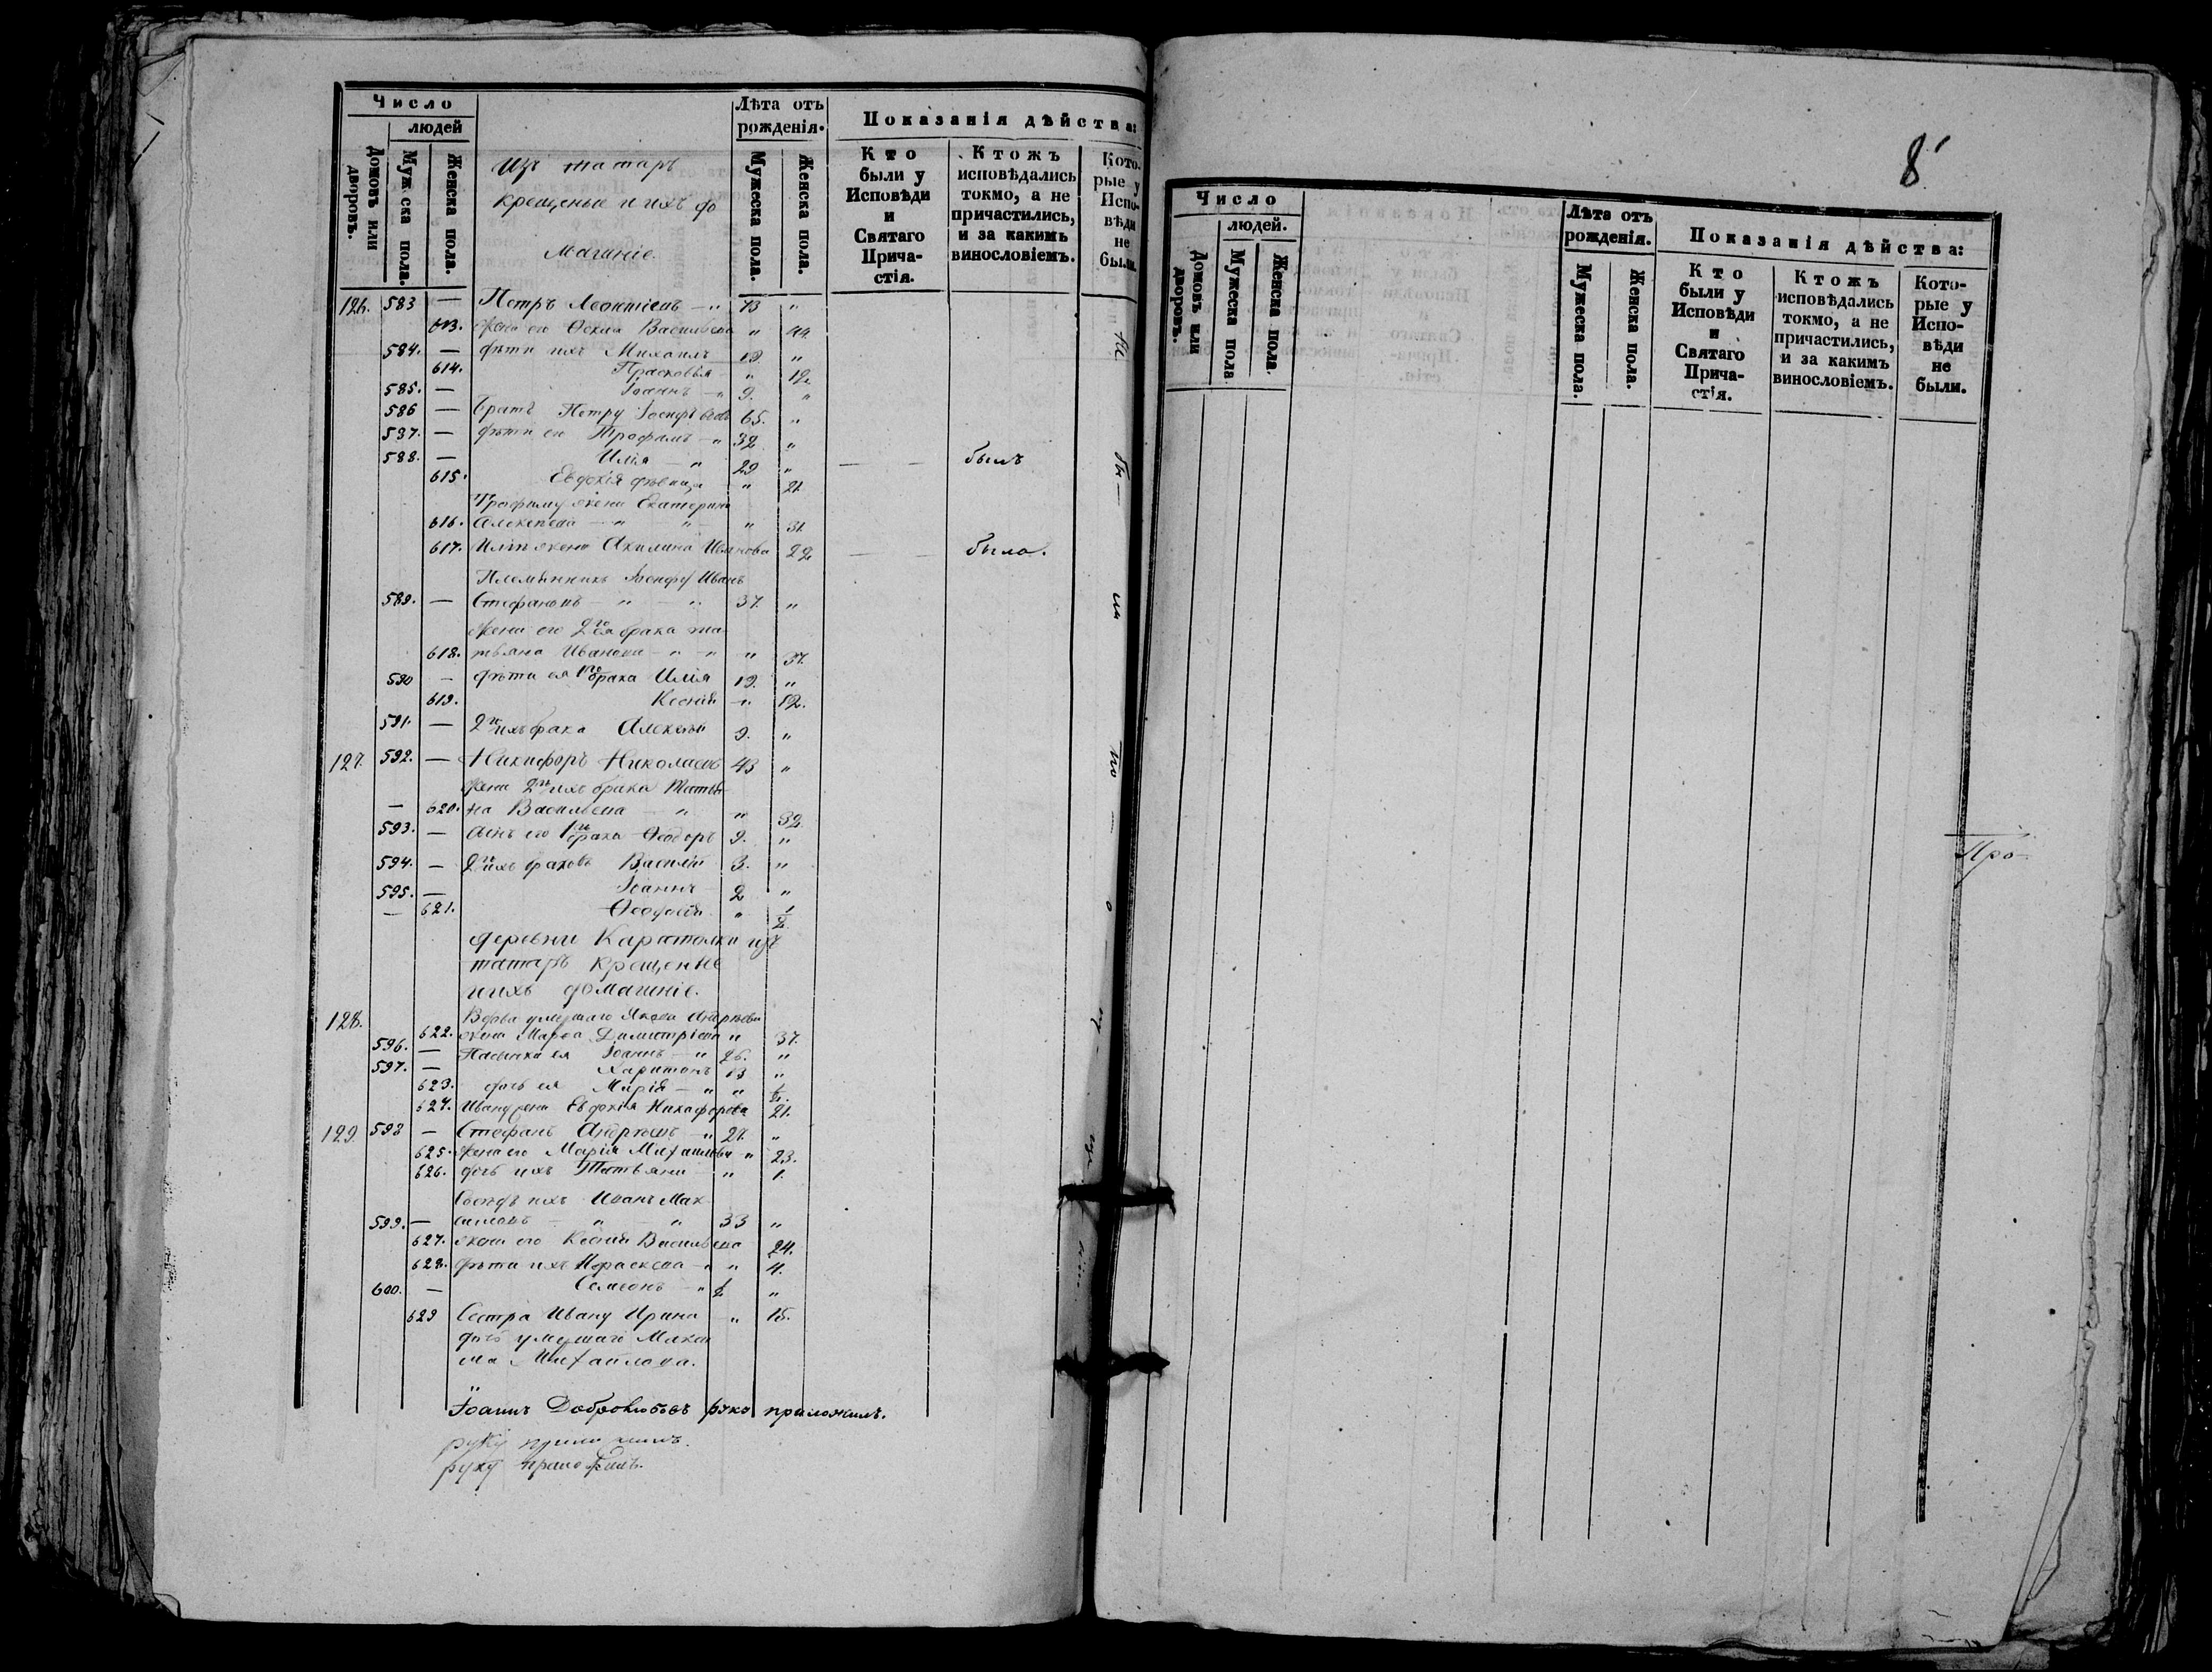 Число
людей
Домовъ или дворовъ.
Мужска пола.
Женска пола.
Изъ татаръ
крещеные и ихъ до
машніе
Лѣта отъ рожденія.
Мужеска пола.
Женска пола.
Показанія дѣйства:
Кто были у Исповѣди и Святаго Причастія.
Ктожъ исповѣдались токмо, а не причастились, и за какимъ винословіемъ.
Которые у Исповѣди не были.
126. 583 — Петръ Леонтіевъ — "
613. жена его Ѳекла Васильева " 44.
584. — дѣти ихъ Михаилъ 19. "
614. Прасковья " 12.
585. — Іоаннъ — " 9. "
586 — Братъ Петру Іосифъ 65. "
587. — дѣти его Трофимъ — " 32 "
588. — Илія — " 29 " — — былъ
615. Евдокія дѣвица — " 21.
Трофиму жена Екатерина
616. Алексѣева — " " — " 31.
617. Иліи жена Акилина Иванова 22 — — была.
Племянникъ Іосифу Иванъ
589. — Стефановъ — " — " 37. "
жена его 2го брака та-
618. тьяна Иванова — " — " " 37.
590 — дѣти ея 1го брака Илія 19. "
619. Ксенія — " 12.
591. — 2го ихъ брака Алексѣй 9. "
127. 592. — Никифоръ Николаевъ 43 "
жена 2го ихъ брака Татья
— 620. на Васильева — " " 32.
593. — сынъ его 1го брака Ѳеодоръ 9. "
594. — 2го ихъ браковъ Василій 3. "
595. — Іоаннъ 2 "
— 621. Ѳеодосія " 1/2
деревни Каратолки изъ
татаръ крещеные
и ихъ домашніе.
128. Вдова умершаго Якова Андреева
622. жена Марѳа Димитріева " 37.
596. — Пасынки ея Іоаннъ — " 26. "
597. — Харитонъ 13 "
623. дочь ея Марія — " "
624. Ивану жена Евдокія Никифорова 21.
129 598 — Стефанъ Андреевъ — " 27. "
625. жена его Марія Михаилова " 23.
626. дочь ихъ Татьяна — " 1.
Сосѣдъ ихъ Иванъ Мак
599. — симовъ — " — " 33 "
627. жена его Ксенія Васильева 24.
628. дѣти ихъ Параскева — " " 4.
600. — Симеонъ — " "
629 Сестра Ивану Ирина — " 15.
дочь умершаго Макси
ма Михаилова.
Іоаннъ Добролюбовъ руку приложилъ.
руку приложилъ.
руку приложилъ.
8
Число
людей.
Домовъ или дворовъ.
Мужеска пола
Женска пола.
Лѣта отъ рожденія.
Мужеска пола.
Женска пола.
Показанія дѣйства:
Кто были у Исповѣди и Святаго Причастія.
Ктожъ исповѣдались токмо, а не причастились, и за какимъ винословіемъ.
Которые у Исповѣди не были.
Про-